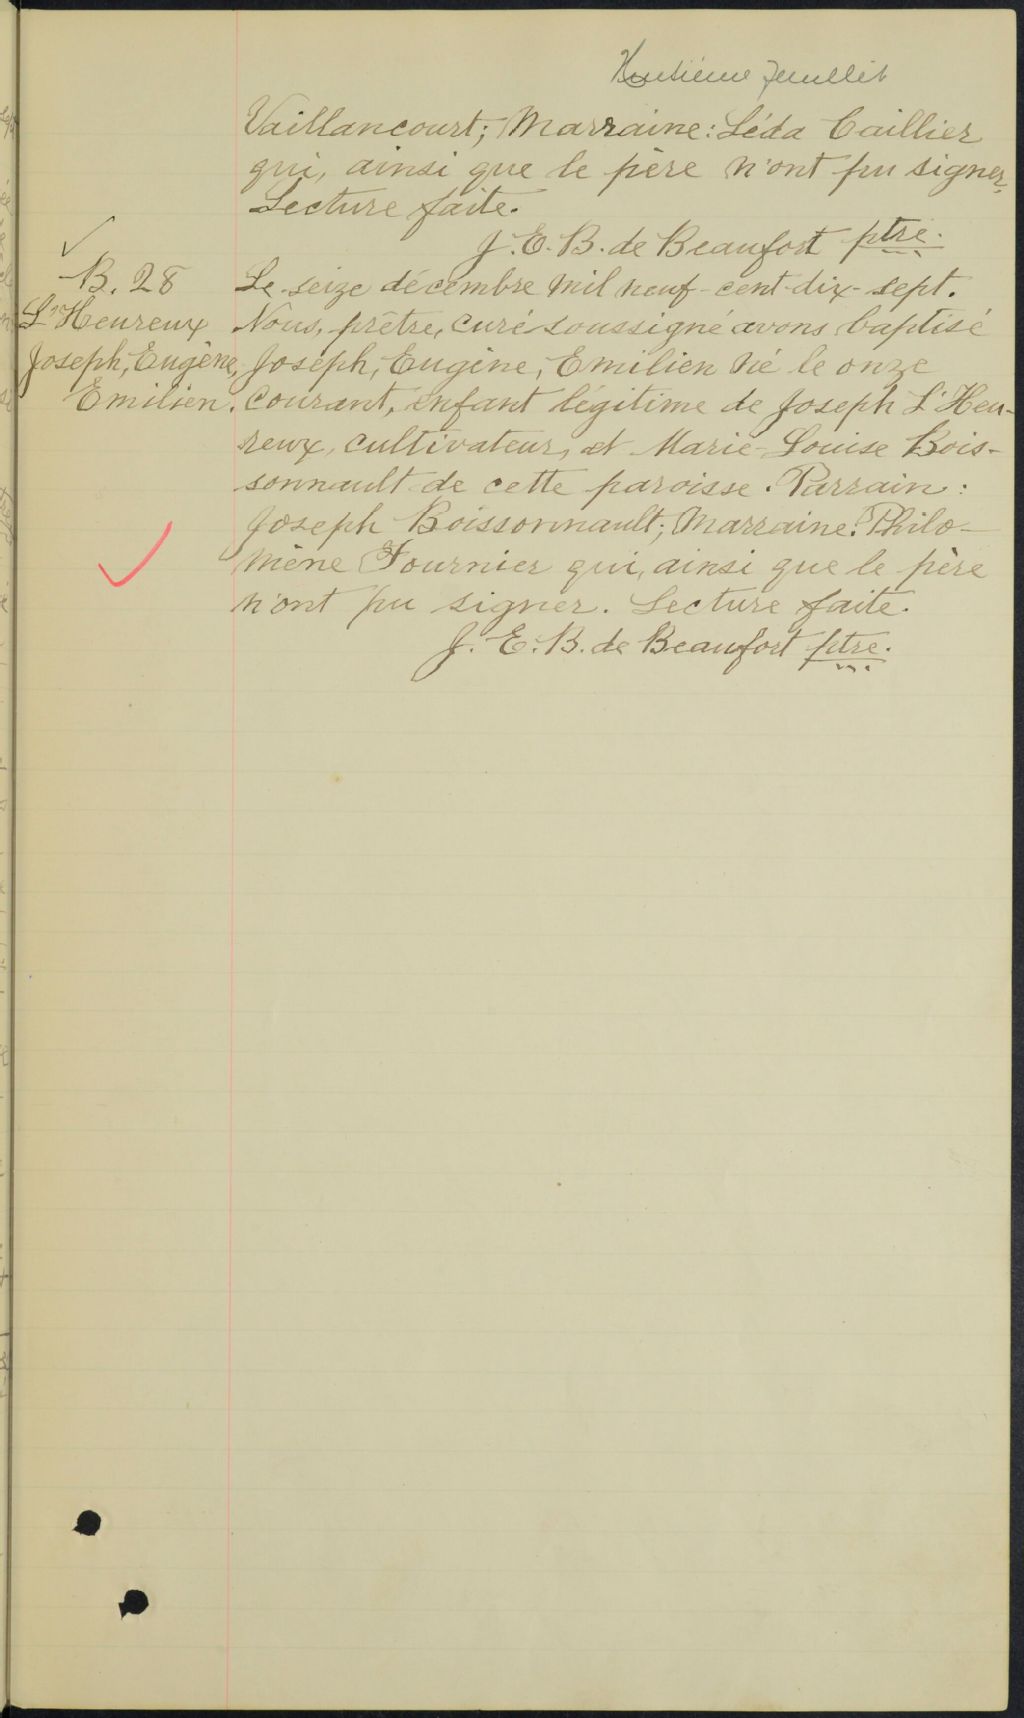 Huitième feuillet
Vaillancourt; Marraine: Léda Caillier
qui, ainsi que le père n'ont pu signer.
Lecture faite.
J. E. B. de Beaufort ptre.
B. 28
L'Heureux
Joseph, Eugène,
Emilien.
Le seize décembre mil neuf-cent-dix-sept.
Nous, prêtre, curé soussigné avons baptisé
Joseph, Eugène, Emilien né le onze
courant, enfant légitime de Joseph L'Heu-
reux, cultivateur, et Marie-Louise Bois-
sonnault de cette paroisse. Parrain:
Joseph Boissonnault; Marraine: Philo-
mène Fournier qui, ainsi que le père
n'ont pu signer. Lecture faite.
J. E. B. de Beaufort ptre.